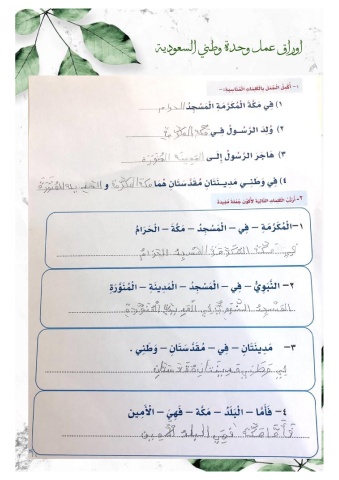 اوراق عمل وحدة وطني السعودية
١- أكمل الجمل بالكلمات المناسبة:-
١) فِي مَكَّةَ الْمُكَرَّمَةِ الْمَسْجِدُ الحرام
٢) وُلِدَ الرَّسُولُ فِـي مكة المكرمة
٣) هَاجَرَ الرَّسُولُ إلى المدينة المنورة
٤) فِي وَطَنِـي مَدِينَتَانِ مُقَدَّسَتَانِ هُمَا مكة المكرمة و المدينة المنورة
٢- أرتب الكلمات التالية لأكون جملة مفيدة
١- الْمُكَرَّمَةِ – فِي – الْمَسْجِدُ – مَكَّةَ – الْحَرَامُ
في مكة المكرمة المسجد الحرام
٢- النَّبَوِيُّ – فِي – الْمَسْجِدُ – الْمَدِينَةِ – الْمُنَوَّرَةِ
المسجد النبوي في المدينة المنورة
٣- مَدِينَتَانِ – فِي – مُقَدَّسَتَانِ – وَطَنِي .
في وطني مدينتان مقدستان
٤- فَأَمَّا – الْبَلَدُ – مَكَّةَ – فَهِيَ – الْأَمِين
فأما مكة فهي البلد الأمين